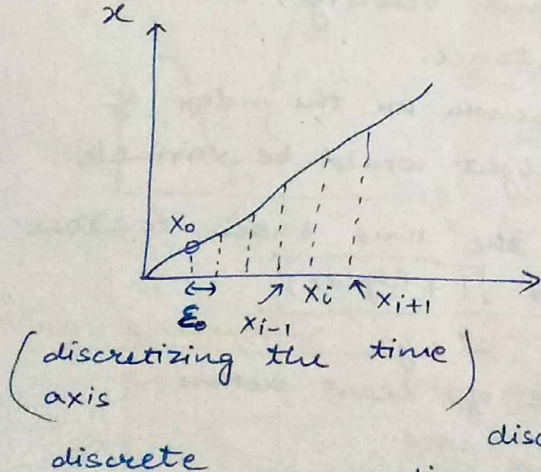 x
x₀
ε₀
x_{i-1}
x_i
x_{i+1}
(discretizing the time
axis)
disc
discrete